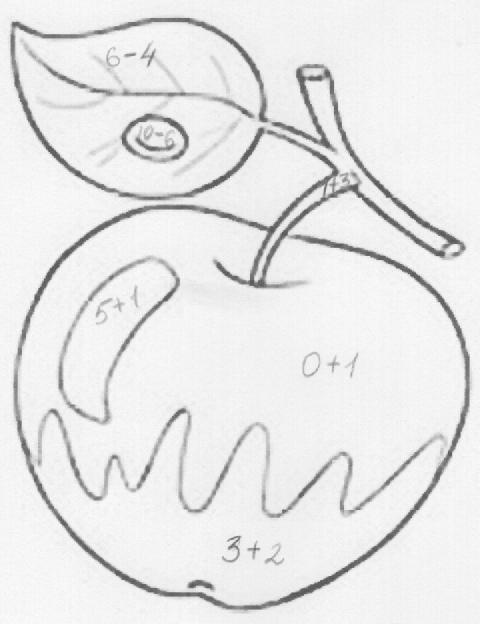 6-4
10-6
1+3
5+1
0+1
3+2